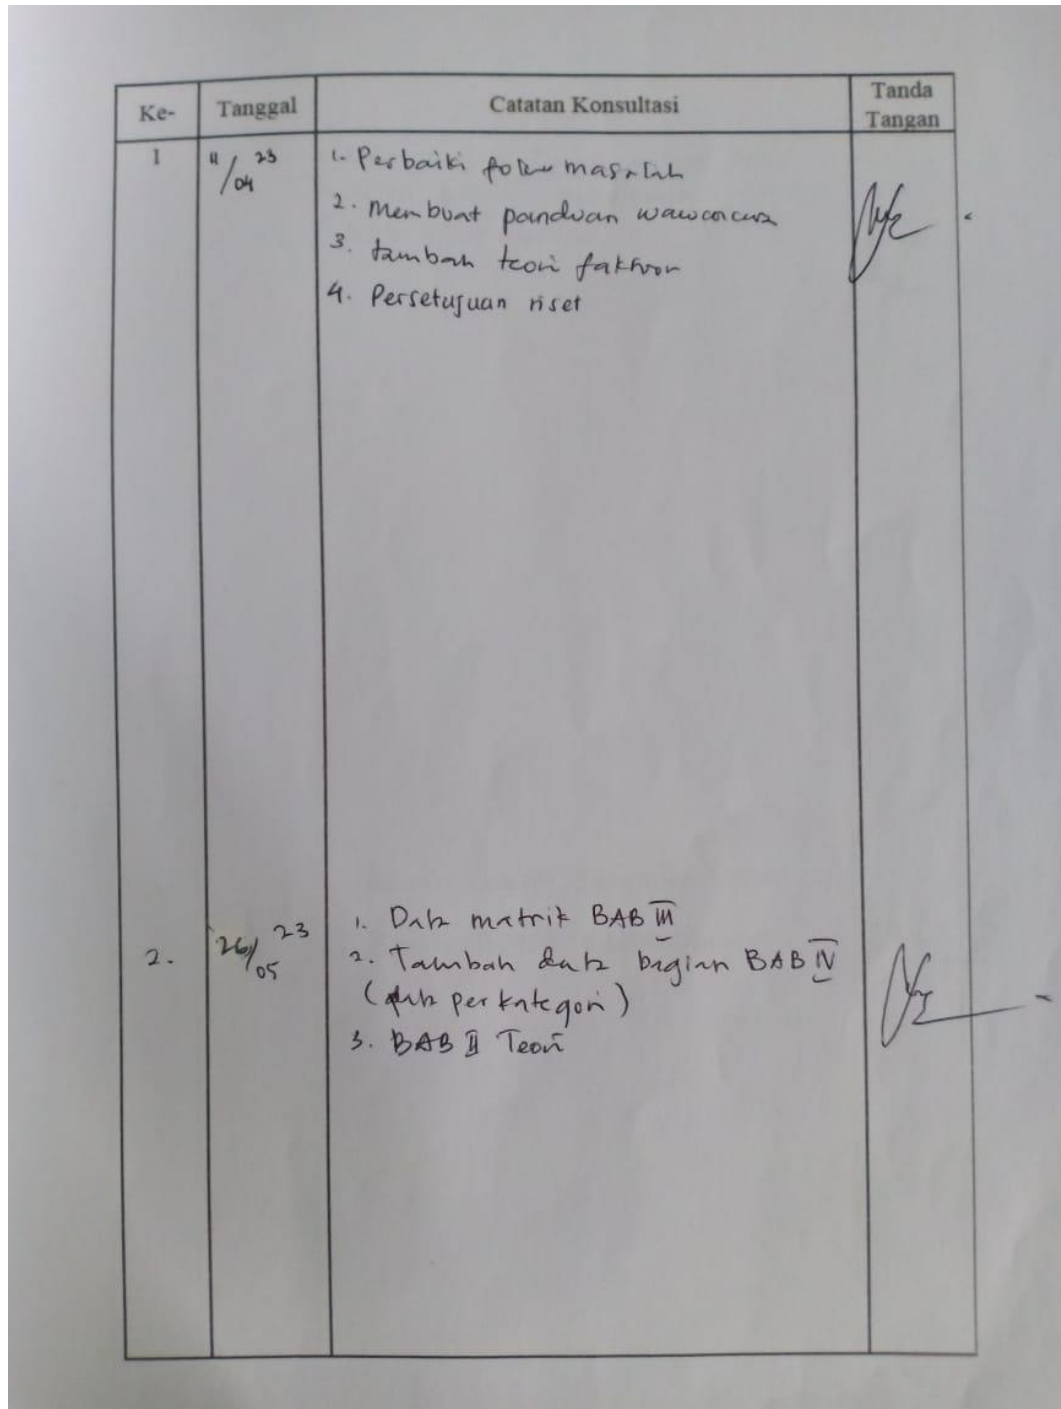 Ke- Tanggal Catatan Konsultasi Tanda Tangan
1 11/04 23 1. Perbaiki fokus masalah
2. Membuat panduan wawancara
3. tambah teori faktor
4. Persetujuan riset
2. 26/05 23 1. Data matrik BAB III
2. Tambah data bagian BAB IV
(data perkategori)
3. BAB II Teori